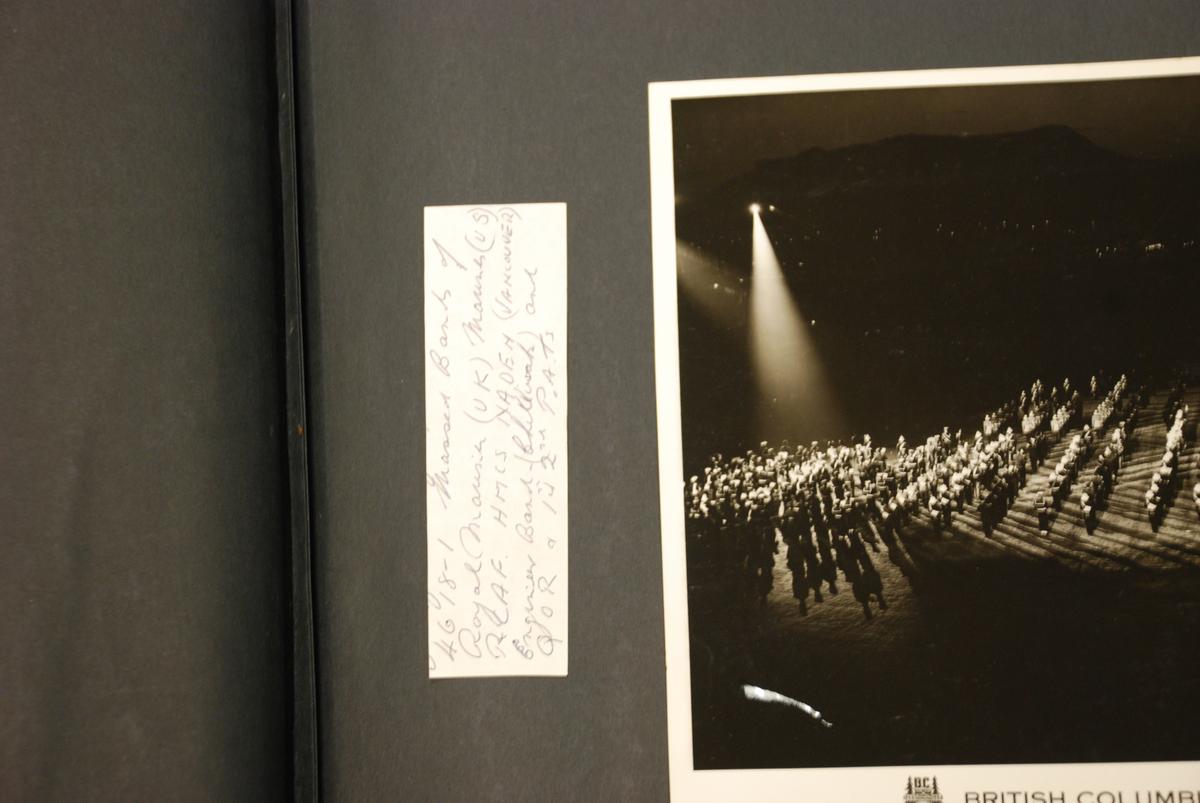 46718-1 Massed Bands of
Royal Marines (UK) Marines (US)
RCAF. HMCS NADEN (VANCOUVER)
Engineer Band (Chilliwack) and
QOR & 1st 2nd P.A.Ts
BC
BRITISH COLUMB